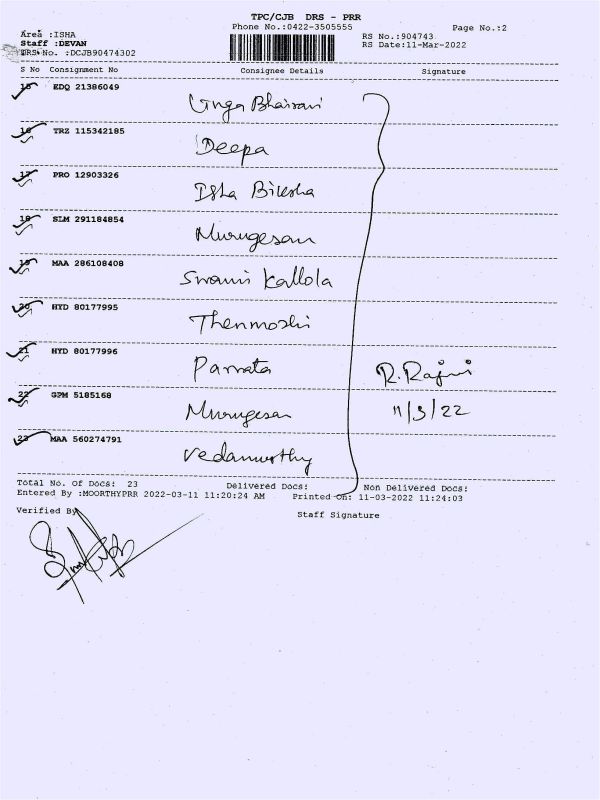 TPC/CJB DRS - PRR
Phone No.:0422-3505555
Page No.:2
Area :ISHA
Staff :DEVAN
DRS No. :DCJB90474302
RS No.:904743
RS Date:11-Mar-2022
S No Consignment No Consignee Details Signature
15 EDQ 21386049
Linga Bhairavi
16 TRZ 115342185
Deepa
17 PRO 12903326
Isha Biksha
18 SLM 291184854
Murugesan
19 MAA 286108408
Swami Kallola
20 HYD 80177995
Thenmoshi
21 HYD 80177996
R. Rajini
22 GPM 5185168
Murugesan 11/3/22
23 MAA 560274791
Vedamurthy
Total No. Of Docs: 23 Delivered Docs: Non Delivered Docs:
Entered By :MOORTHYPRR 2022-03-11 11:20:24 AM Printed On: 11-03-2022 11:24:03
Verified By
Staff Signature